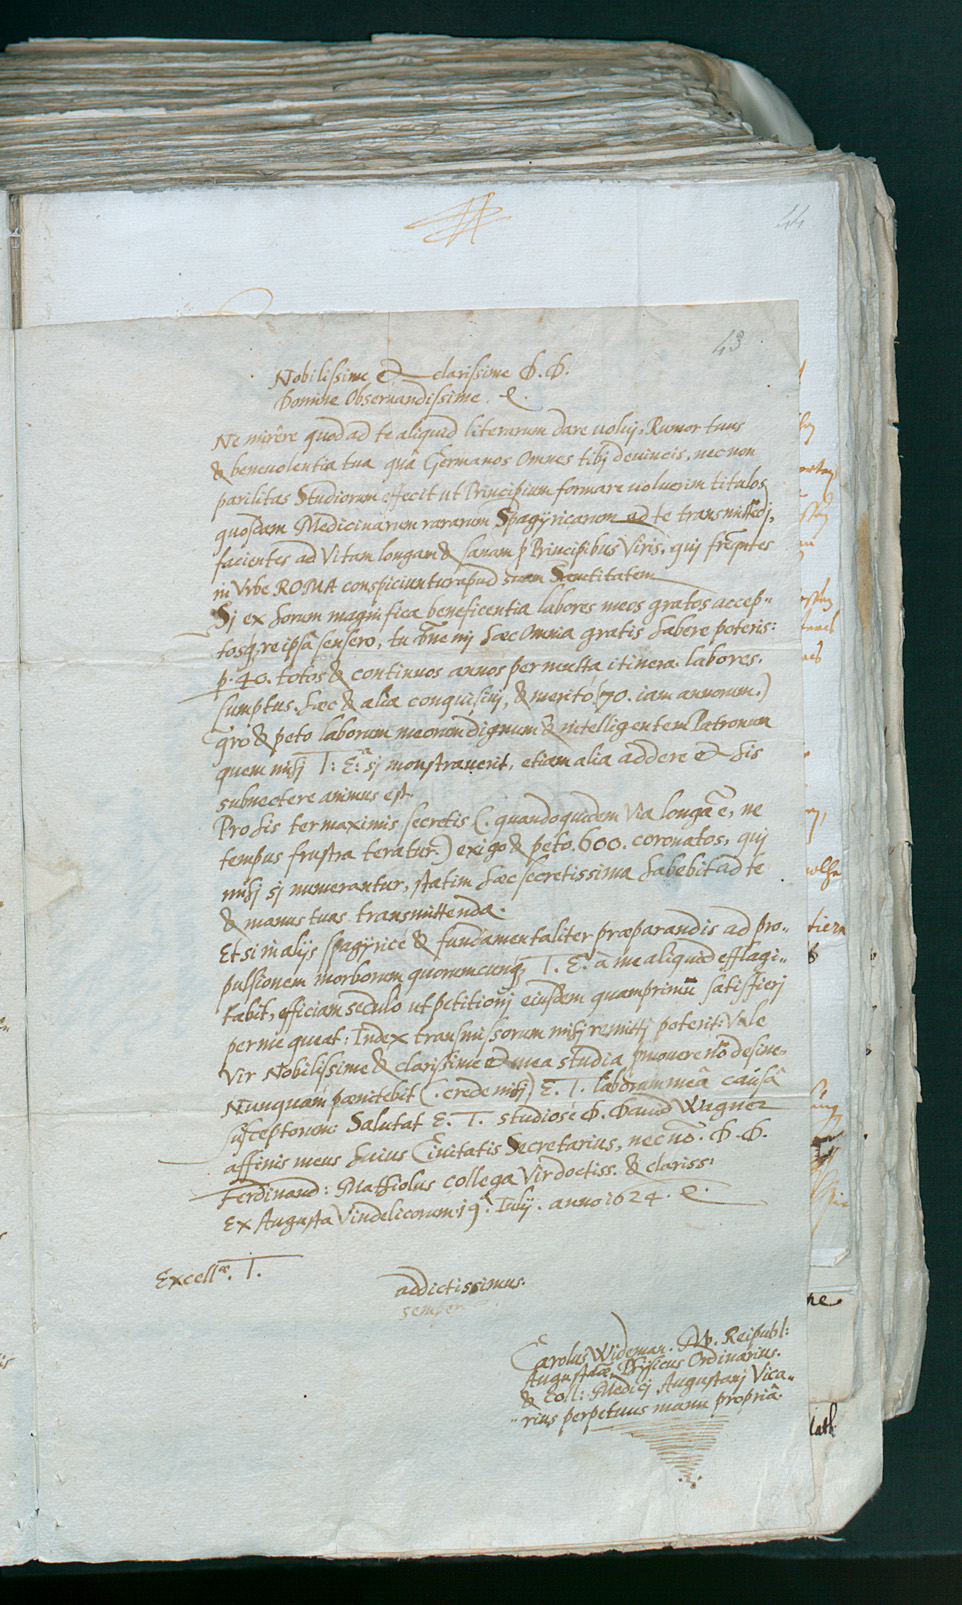 44
43
Nobilissime & clarissime D. D.
Domine Observandissime. &.
Ne mirêre quod ad te aliquid literarum dare volui, Rumor tuus
& benevolentia tua quâ Germanos Omnes tibj devincis, nec non
parilitas Studiorum effecit ut Principium formare voluerim titulos
quosdam Medicinarum rararum Spagÿricarum ad te transmittendj,
facientes ad Vitam longam & sanam p Principibus Viris, qui
in Vrbe ROMA conspiciuntur apud suam Sanctitatem
Sj ex horum magnifica beneficentia labores meos gratos accep„
tosq; re ipsâ sensero, tu hæc Omnia gratis habere poteris:
p. 40. totos & continuos annos per multa itinera. labores.
sumptus. hæc & alia conquisivj, & meritó (70. iam annorum.)
& peto laborum meorum dignum & intelligentem Patronum
quem mihj T: E:ᵃ sj monstraverit, etiam alia addere & his
subnectere animus est.
Pro his ter maximis secretis (. quandoquidem Via longa ē, ne
tempus frustra teratur.) exigo & peto. 600. coronatos, qui
mihj sj numerantur, statim hæc secretissima habebit ad te
& manus tuas transmittenda.
Et si in alijs spagÿricè & fundamentaliter præparandis ad pro„
pulsionem morborum quorumcunq; T. E. a me aliquid efflagi„
tabit, efficiam sedulo ut petitionj eiusdem quamprimū satisfierj
per me queat: Index transmissorum mihj remittj poterit: Vale
Vir Nobilissime & clarissime & mea studia pmovere nō desine,
Nunquam pœnitebit (. crede mihj) E. T. laborum meâ causâ
susceptorum: Salutat E. T. studiose D. David Wagner
affinis meus huius Civitatis Secretarius, nec nō. D. D.
Ferdinand: Mathiolus collega Vir doctiss. & clariss:
Ex Augusta Vindelicorum: 19. Iulij. anno 1624. &.
Excellᵃᵉ. T.
addictissimus.
semper
Carolus Wideman. D. Reipubl:
Augustanæ Phÿsicus Ordinarius.
& Coll: Medicj Augustanj Vica„
„rius perpetuus manu propriâ.